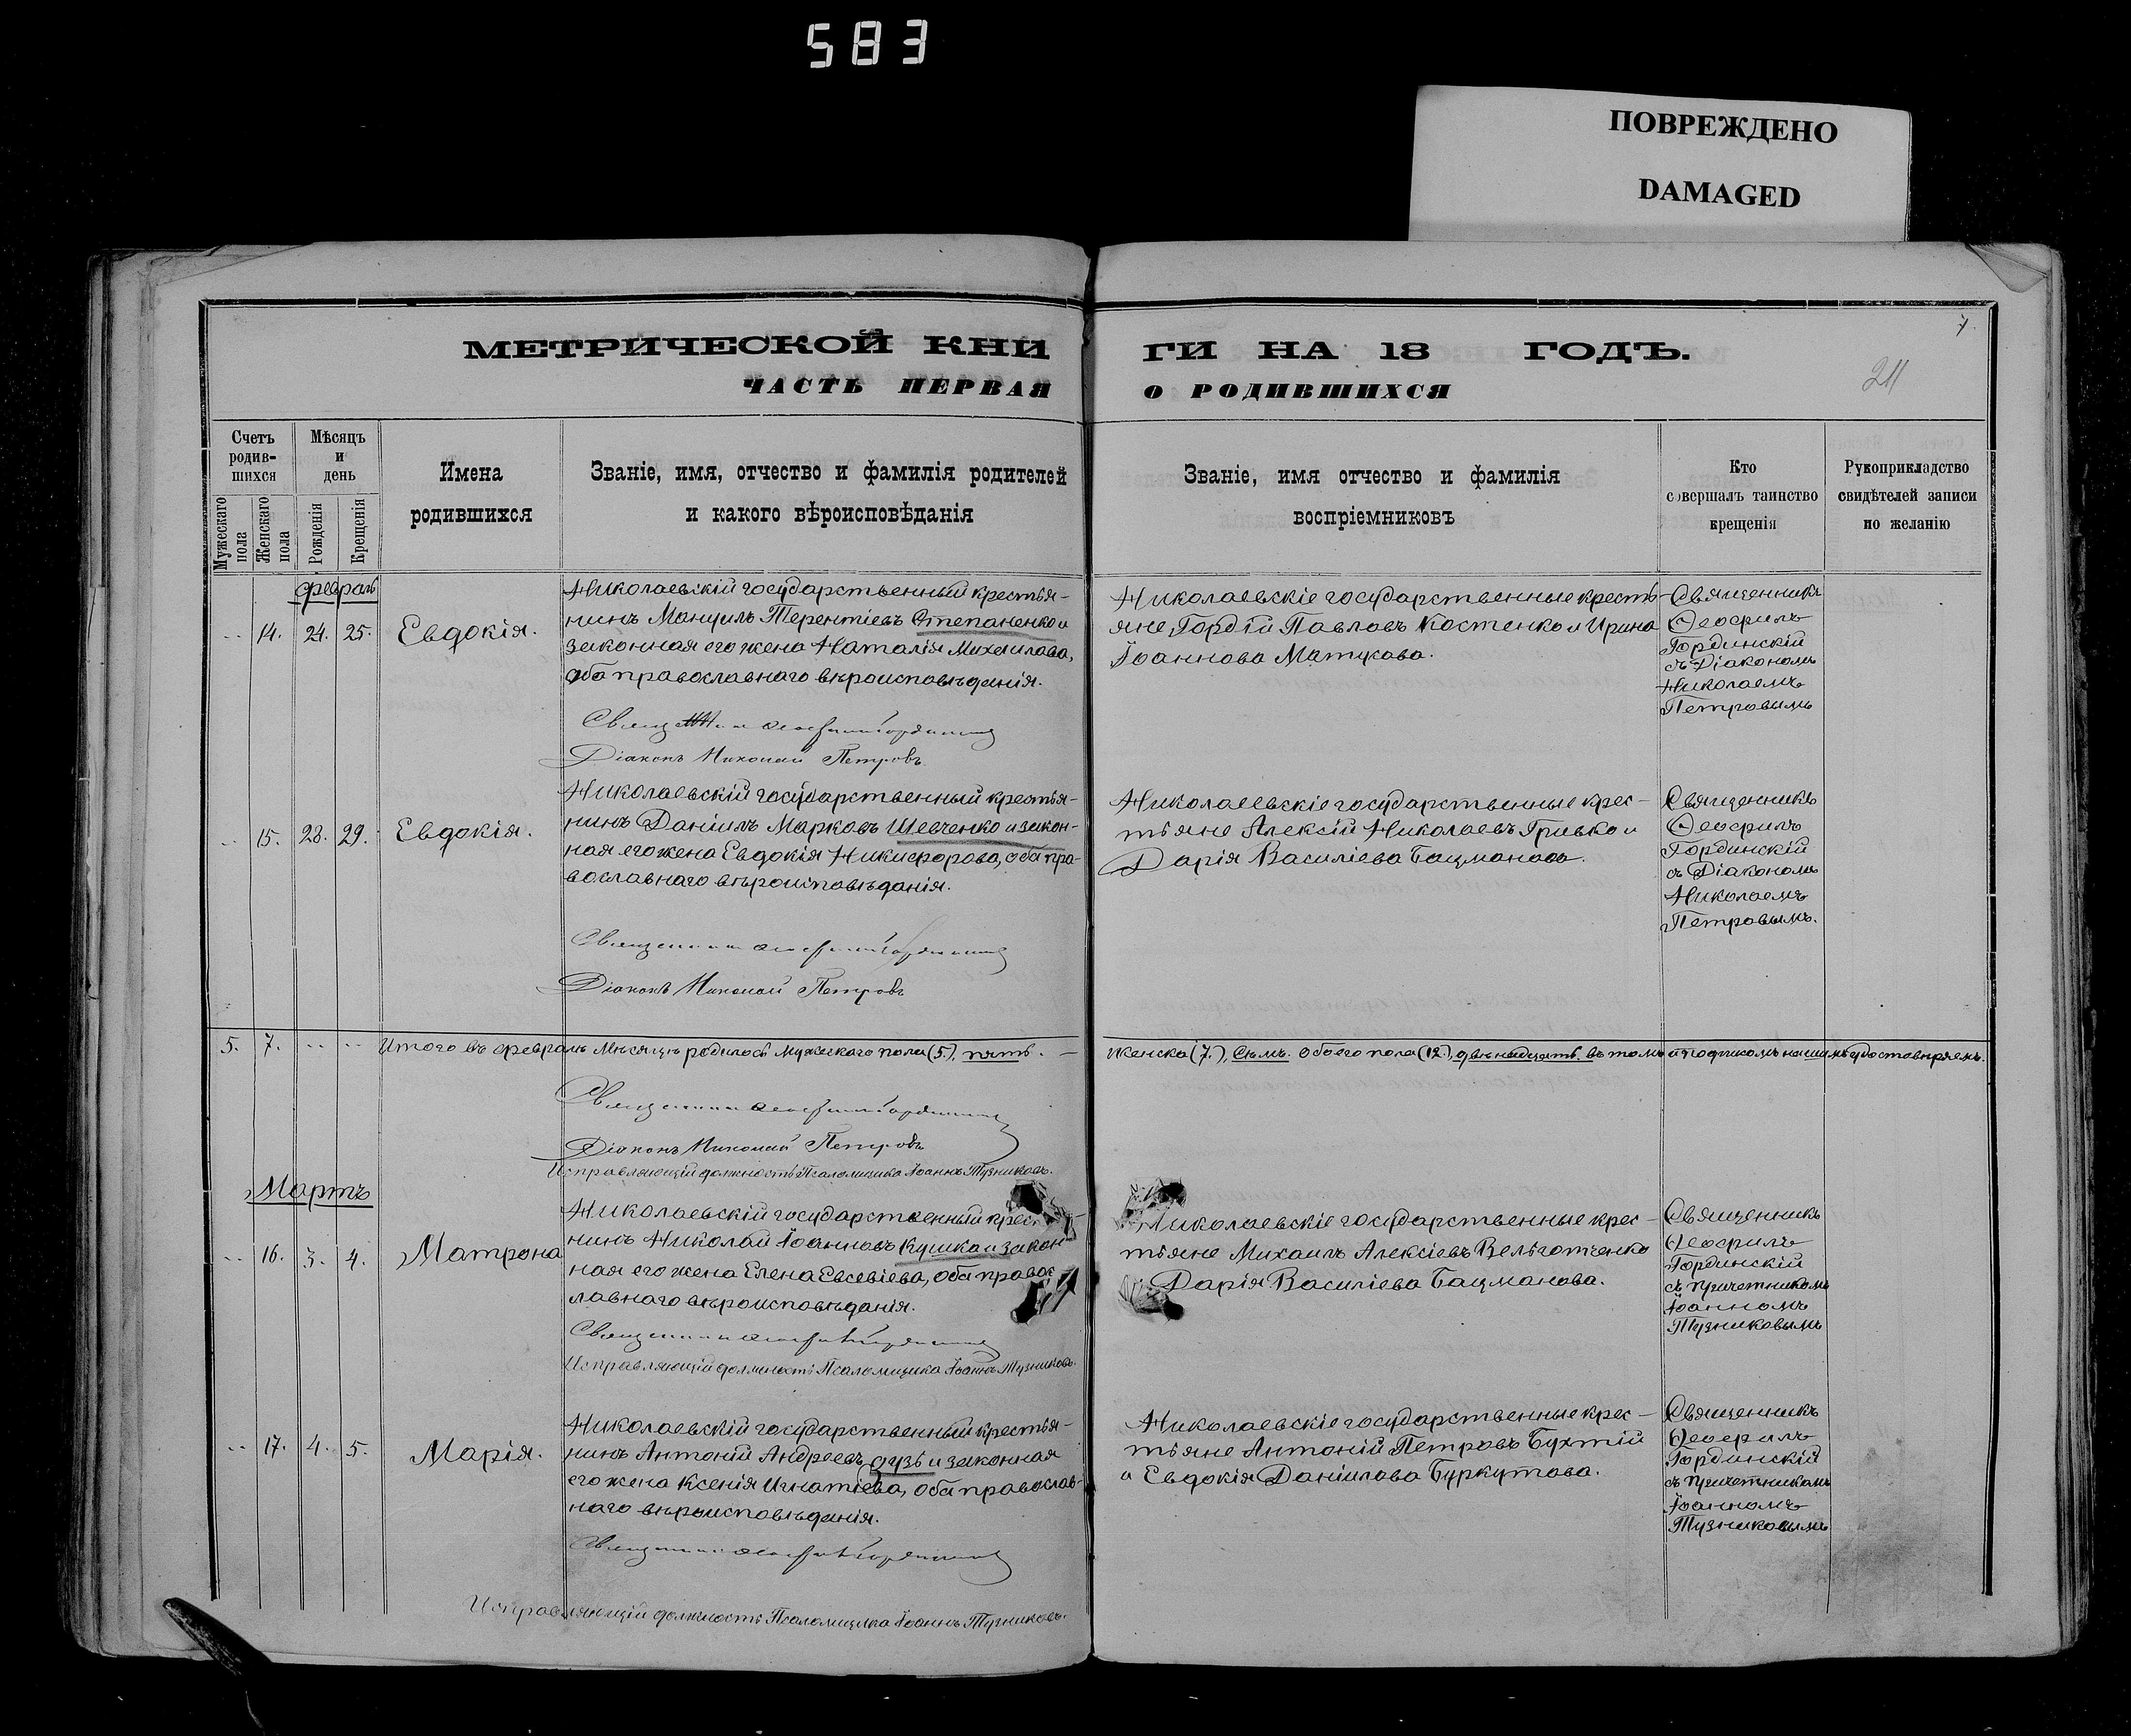 583
ПОВРЕЖДЕНО
DAMAGED
МЕТРИЧЕСКОЙ КНИ
ГИ НА 18 ГОДЪ.
7.
211
ЧАСТЬ ПЕРВАЯ
О РОДИВШИХСЯ
Счетъ
родив-
шихся
Мужескаго
пола
Женскаго
пола
Мѣсяцъ
и
день
Рожденія
Крещенія
Имена
родившихся
Званіе, имя, отчество и фамилія родителей
и какого вѣроисповѣданія
Званіе, имя отчество и фамилія
воспріемниковъ
Кто
совершалъ таинство
крещенія
Рукоприкладство
свидѣтелей записи
по желанію
Февраль
14. 24. 25. Евдокія.
Николаевскій государственный крестья-
нинъ Мануилъ Терентіевъ Степаненко и
законная его жена Наталія Михаилова,
оба православнаго вѣроисповѣданія.
Николаевскіе государственные кресть-
яне, Гордій Павловъ Костенко и Ирина
Іоаннова Матукова.
Священникъ
Ѳеофилъ
Гординскій
съ Діакономъ
Николаемъ
Петровымъ
Священникъ Ѳеофилъ Гординскій
Діаконъ Николай Петровъ
15. 28. 29. Евдокія.
Николаевскій государственный крестья-
нинъ Даніилъ Марковъ Шевченко и закон-
ная его жена Евдокія Никифорова, оба пра-
вославнаго вѣроисповѣданія.
Николаевскіе государственные крес-
тьяне Алексій Николаевъ Гривко и
Дарія Василіева Бацманова.
Священникъ
Ѳеофилъ
Гординскій
съ Діакономъ
Николаемъ
Петровымъ.
Священникъ Ѳеофилъ Гординскій
Діаконъ Николай Петровъ
5. 7. Итого въ февралѣ мѣсяцѣ родилось мужескаго пола (5), пять. —
женска (7.), семь. Обоего пола (12.), двѣнадцать. въ томъ и подписомъ нашимъ удостовѣряемъ.
Священникъ Ѳеофилъ Гординскій
Діаконъ Николай Петровъ
Исправляющій должность Псаломщика Іоаннъ Тузниковъ.
Мартъ
16. 3. 4. Матрона
Николаевскій государственный крес
нинъ Николай Іоанновъ Кушка и закон-
ная его жена Елена Евсевіева, оба правос
лавнаго вѣроисповѣданія.
Николаевскіе государственные крес-
тьяне Михаилъ Алексіевъ Вельготченко
Дарія Василіева Бацманова.
Священникъ
Ѳеофилъ
Гординскій
съ причетникомъ
Іоанномъ
Тузниковымъ
Священникъ Ѳеофилъ Гординскій
Исправляющій должность Псаломщика Іоаннъ Тузниковъ.
17. 4. 5. Марія.
Николаевскій государственный крестья-
нинъ Антоній Андреевъ Дузь и законная
его жена Ксенія Игнатіева, оба православ-
наго вѣроисповѣданія.
Николаевскіе государственные крес-
тьяне Антоній Петровъ Бухтій
и Евдокія Даніилова Буркутова.
Священникъ
Ѳеофилъ
Гординскій
съ причетникомъ
Іоанномъ
Тузниковымъ
Священникъ Ѳеофилъ Гординскій
Исправляющій должность Псаломщика Іоаннъ Тузниковъ.